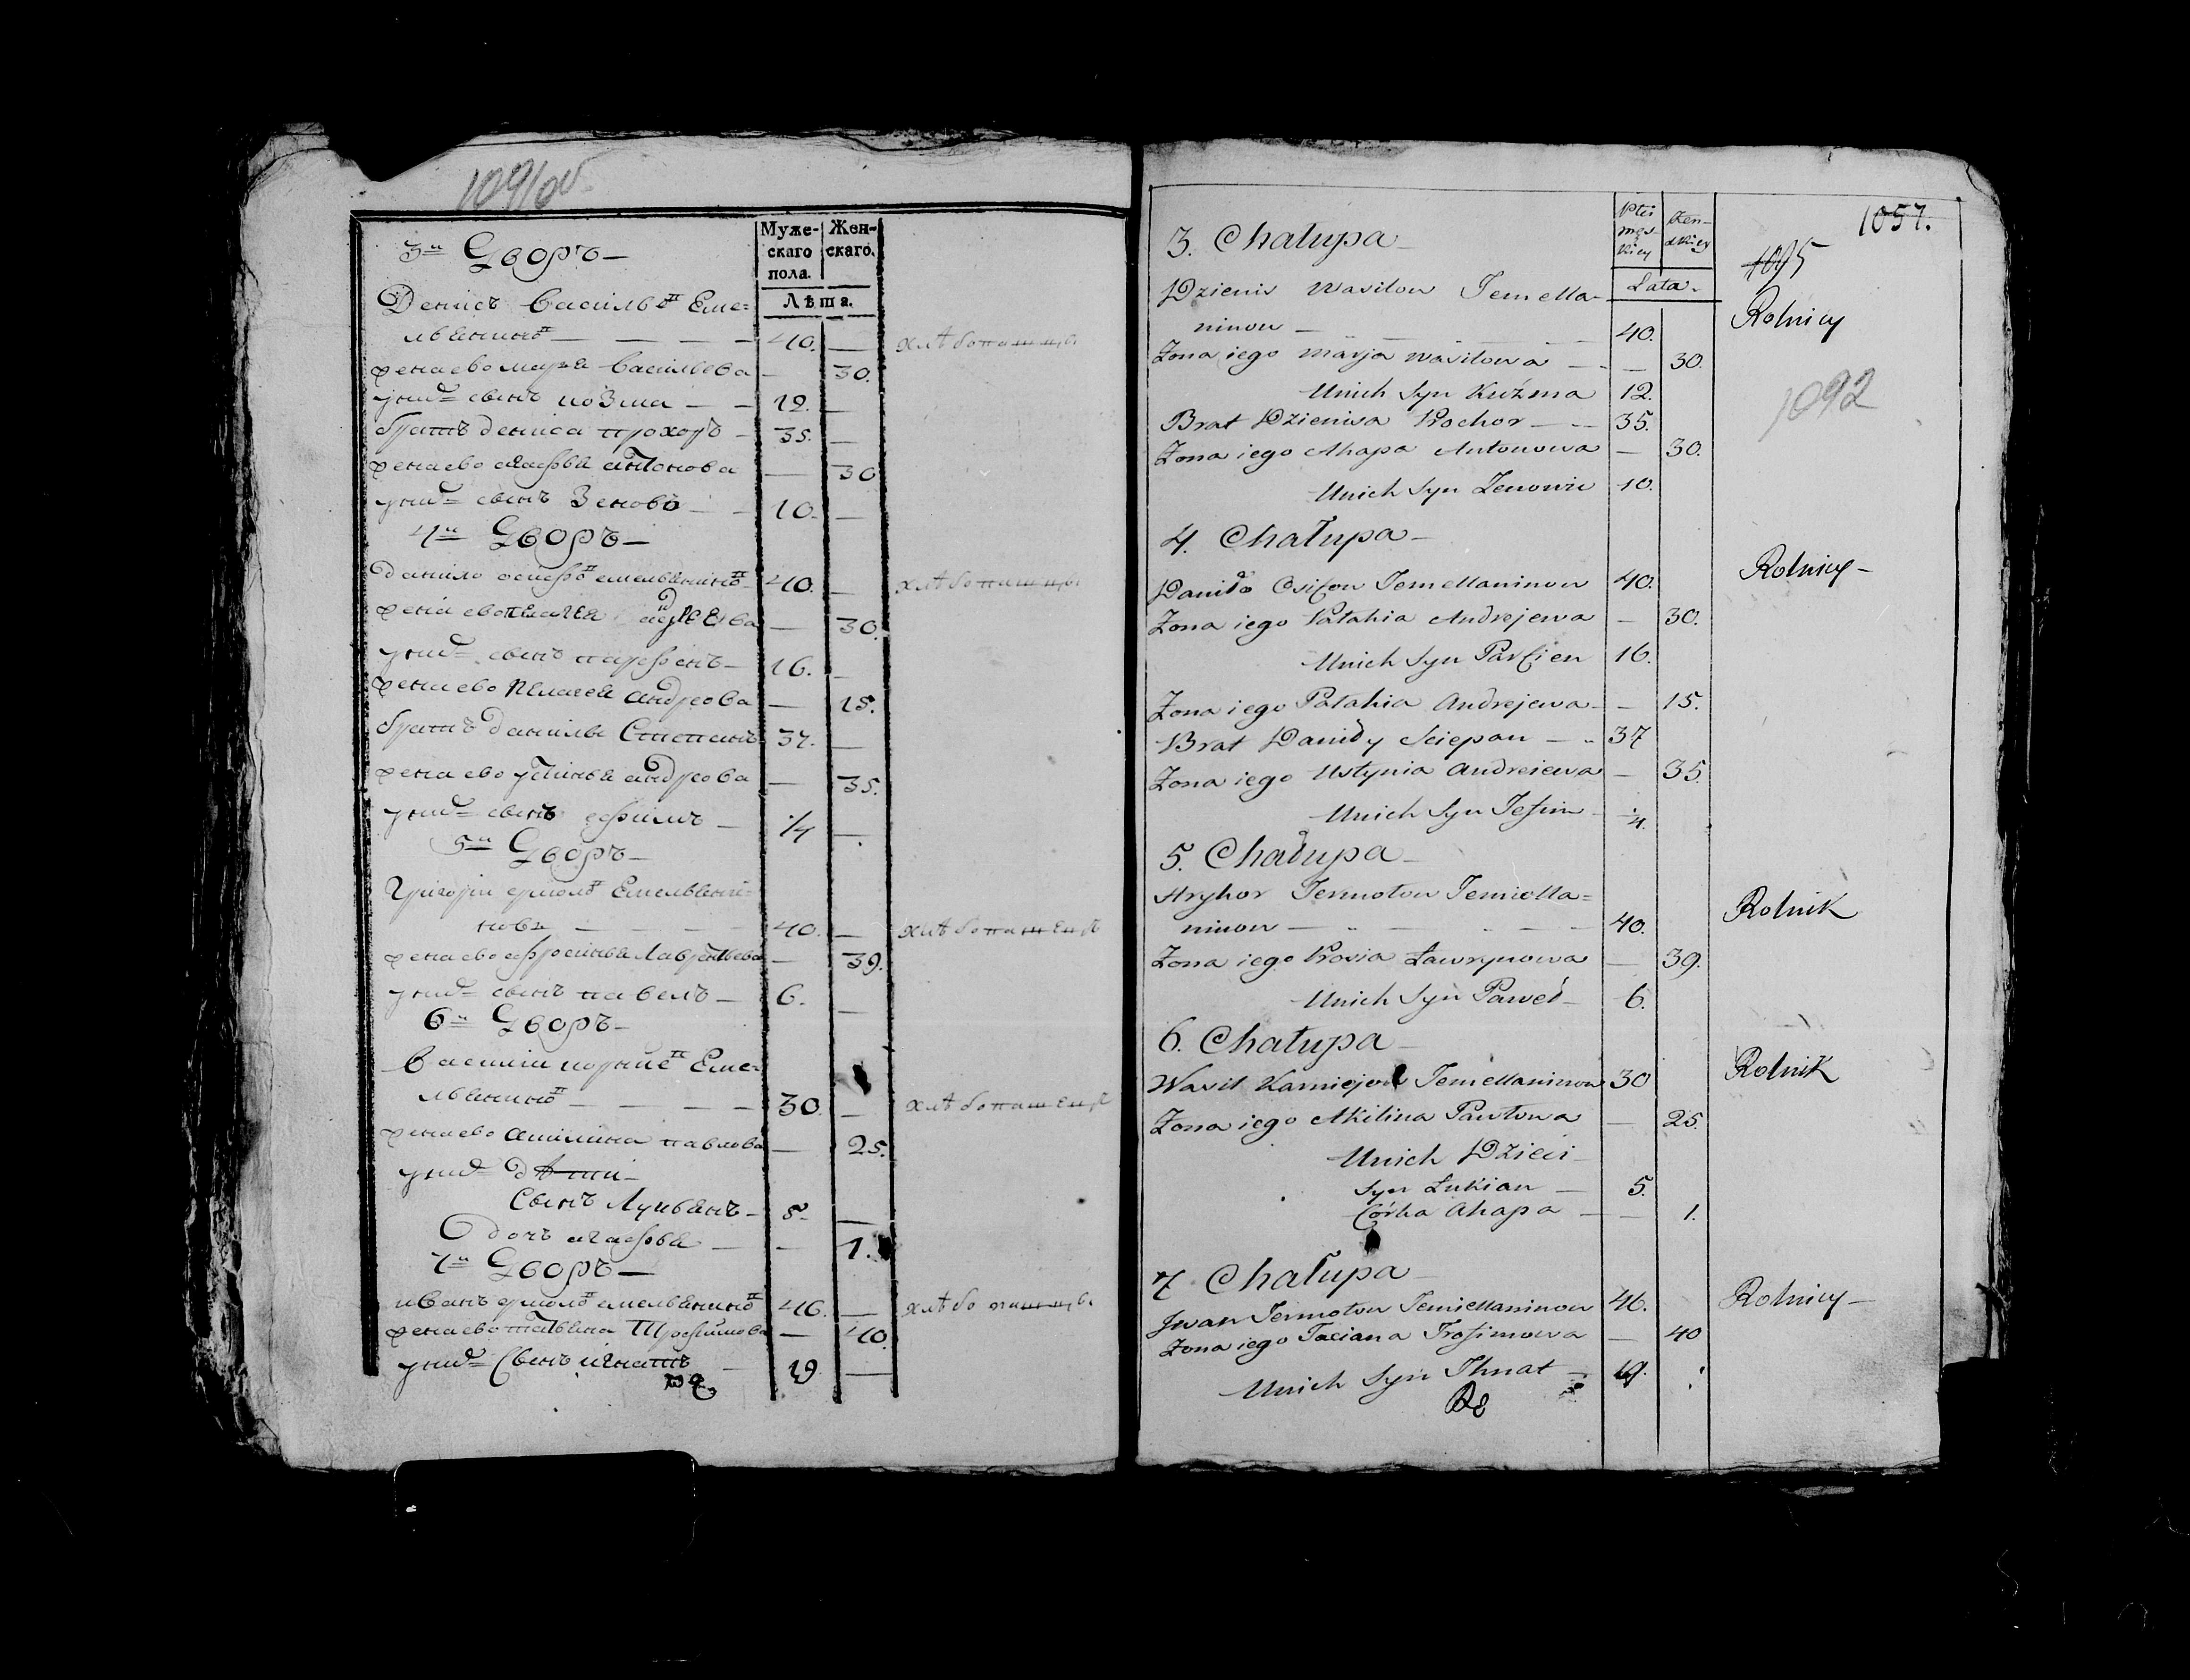 109/об
Муже-
скаго
пола.
Жен-
скаго.
Лѣта.
3й Дворъ —
Денисъ Василье­въ Еме=
льянинъ — — — — 40. —
жена ево марья Васильева — 30.
у них сынъ козма — — 12. —
братъ дениса прохоръ — 35. —
жена ево агафья антонова — 30
у них сынъ Зеновъ — — 10. —
4й Дворъ —
данило осифо емельянино 40. —
жена ево андреева — 30.
у них сынъ парфенъ — 16. —
жена ево пелагея андреова — 15.
братъ данилы Степанъ 37. —
жена ево устинья андреова — 35.
у них сынъ ефимъ — 1/4 —
5й Дворъ —
Григорiи ермоло Емельяни=
новъ — — — — 40. —
жена ево ефросинья Лаврентьева — 39.
у них сынъ павелъ — 6. —
6й Дворъ —
Василiи Еме=
льянино — — — — 30. —
жена ево акилина павлова — 25.
у них дѣти —
Сынъ Лукьянъ — 5. —
дочь агафья — — 1.
7й Дворъ —
иванъ ермоло емельянино 46. —
жена ево татьяна Трофимова — 40.
у них Сынъ игнатъ — 19 —
хлѣбопашцы
хлѣбопашцы
хлѣбопашецъ
хлѣбопашецъ
хлѣбопашцы
1057.
1095
1092
Płci
męs-
kiey
Żen-
skiey
Lata.
3. Chałupa —
Dzienis Wasilow Jemella-
ninow — 40. Rolnicy
Żona iego Marja Wasilowa — — 30.
Unich Syn Kuźma 12.
Brat Dzienisa Prochor — — 35.
Żona iego Ahapa Antonowa — 30.
Unich Syn Zenowic 10.
4. Chałupa —
Daniło Osifow Jemellaninow 40. Rolnicy —
Żona iego Pałahia Andrejewa — 30.
Unich Syn Parfien 16.
Żona iego Pałahia Andrejewa — — 15.
Brat Daniły Sciepan — — 37
Żona iego Ustynia Andreiewa — 35.
Unich Syn Jefim 1/4.
5. Chałupa —
Hryhor Jermołow Jemiella=
ninow — — — — 40. Rolnik
Żona iego Prosia Ławrynowa — 39.
Unich Syn Paweł — 6.
6. Chałupa —
Wasil Karniejow Jemiellaninow 30 Rolnik
Żona iego Akilina Pawłowa — 25.
Unich Dzieci —
Syn Łukian — 5.
Córka Ahapa — — 1.
7. Chałupa —
Jwan Jermołow Jemiellaninow 46. Rolnicy —
Żona iego Taciana Trofimowa — 40
Unich Syn Ihnat — 19.